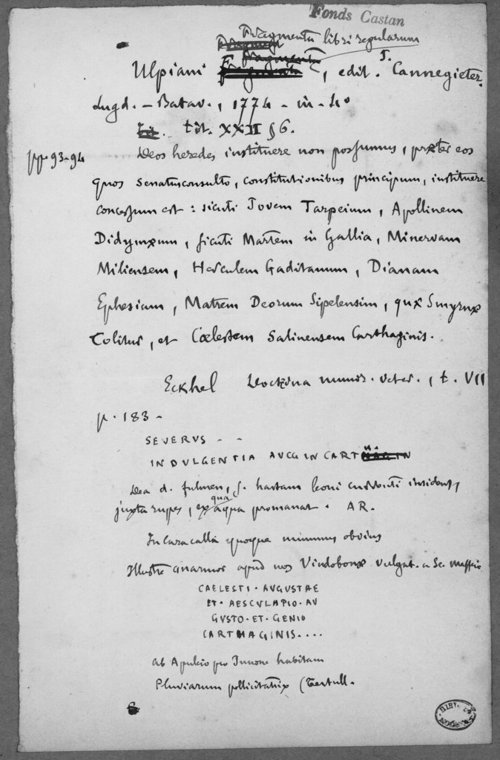 Fonds Castan
Fragmenta libri regularum
Ulpiani, edit. Cannegieter,
Lugd. - Batav., 1774 - in - 4º
tit. XXII § 6.
pp. 93-94
Deos heredes instituere non possumus, præter eos
quos senatusconsulto, constitutionibus principum, instituere
concessum est : sicuti Jovem Tarpeium, Apollinem
Didymæum, sicuti Martem in Gallia, Minervam
Miliensem, Herculem Gaditanum, Dianam
Ephesiam, Matrem Deorum Sipelensim, quæ Smyrnæ
colitur, et Cœlestem Salinensem Carthaginis.
Eckhel Doctrina numis. veter., t. VII
p. 183 -
SEVERVS - -
INDVLGENTIA AVGG IN CARTH
Dea d. fulmen, s. hastam leoni currenti insidens,
juxta rupes, ex qua aqua promanat. AR.
In Caracalla quoque minimus obvius
Illustre marmor apud nos Vindobonæ vulgat. a Sc. Maffeio
CAELESTI · AVGVSTAE
ET · AESCVLAPIO · AV
GVSTO · ET · GENIO
CARTHAGINIS....
ab Apuleio pro Junone habitam
Pluviarum pollicitatrix (Tertull.